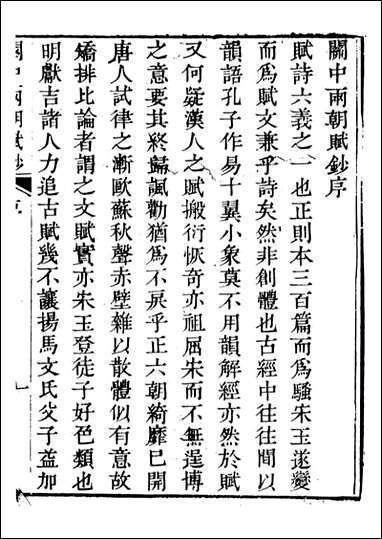 關中兩朝賦鈔序
賦詩六義之一也正則本三百篇而爲騷宋玉遂變
而爲賦文兼乎詩矣然非創體也古經中往往間以
韻語孔子作易十翼小象莫不用韻解經亦然於賦
又何疑漢人之賦搬衍恢奇亦祖屈宋而不無逞博
之意要其終歸諷勸猶爲不戾乎正六朝綺靡已開
唐人試律之漸歐蘇秋聲赤壁雜以散體似有意故
矯排比論者謂之文賦實亦宋玉登徒子好色類也
明獻吉諸人力追古賦幾不讓揚馬文氏父子益加
關中兩朝賦鈔
序
一